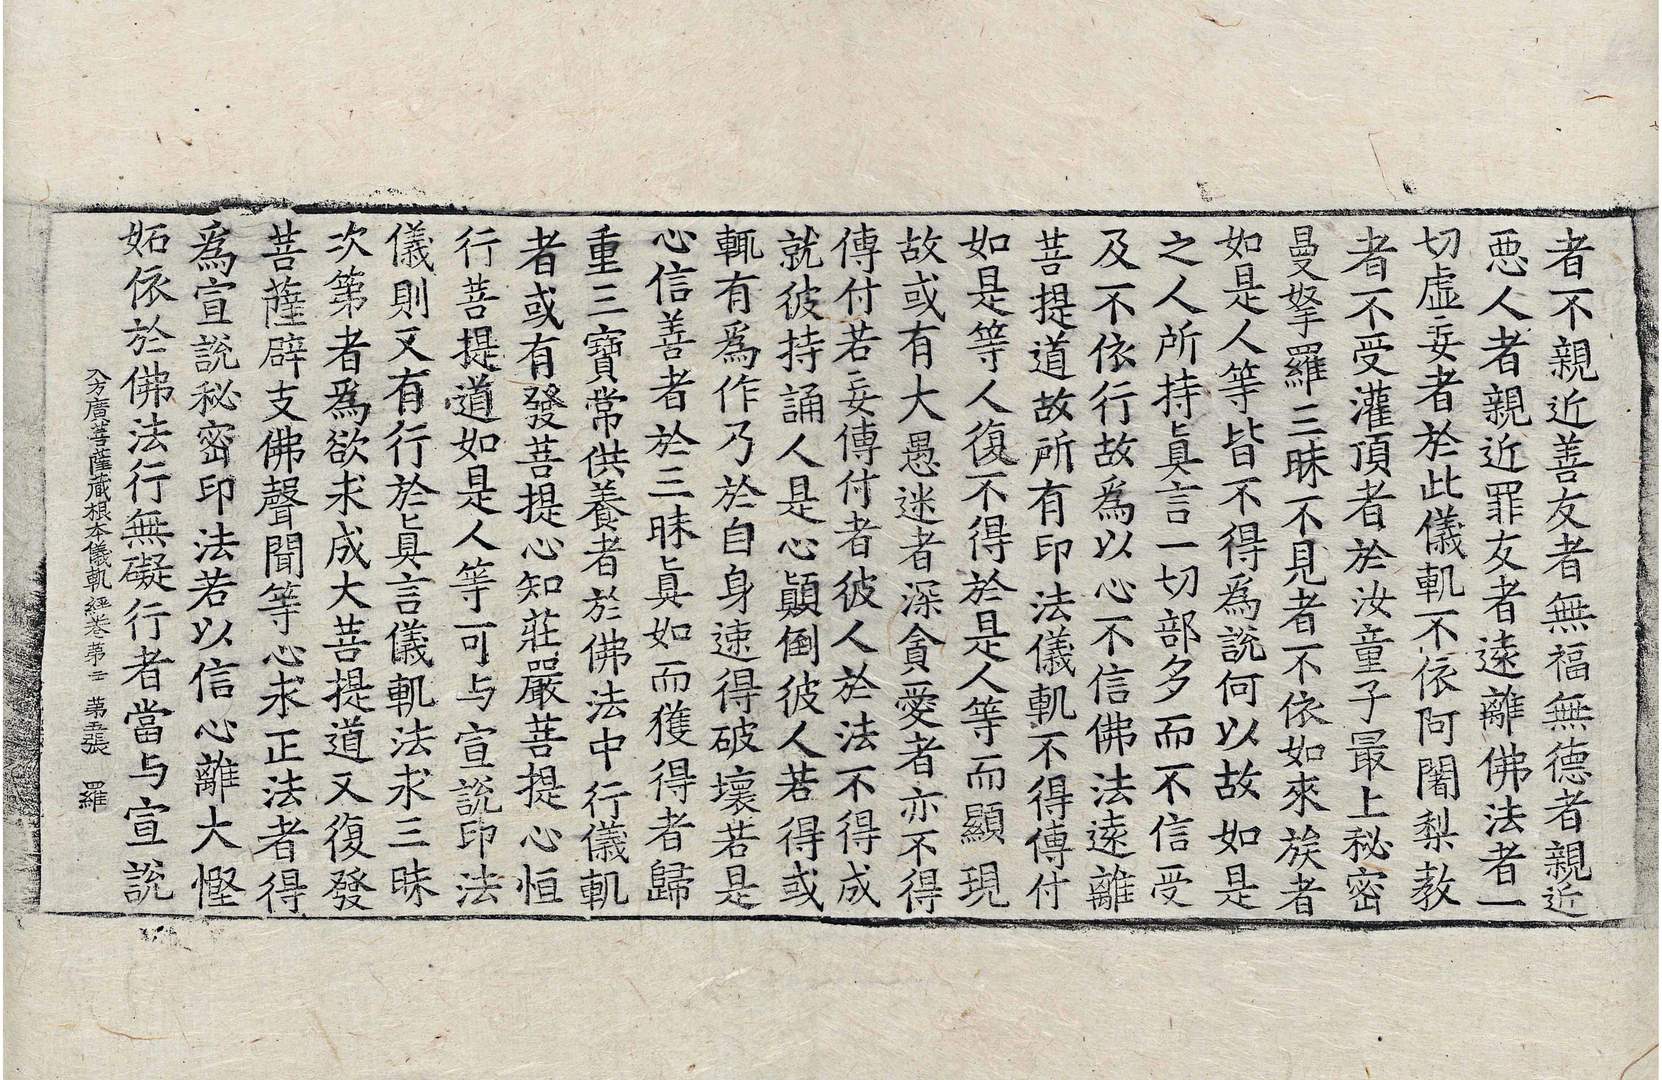 者不親近善友者無福無德者親近
惡人者親近罪友者遠離佛法者一
切虛妄者於此儀軌不依阿闍梨教
者不受灌頂者於汝童子最上秘密
曼拏羅三昧不見者不依如來族者
如是人等皆不得爲說何以故如是
之人所持真言一切部多而不信受
及不依行故爲以心不信佛法遠離
菩提道故所有印法儀軌不得傳付
如是等人復不得於是人等而顯現
故或有大愚迷者深貪愛者亦不得
傳付若妄傳付者彼人於法不得成
就彼持誦人是心顚倒彼人若得或
輒有爲作乃於自身速得破壞若是
心信善者於三昧真如而獲得者歸
重三寶常供養者於佛法中行儀軌
者或有發菩提心知莊嚴菩提心恒
行菩提道如是人等可与宣說印法
儀則又有行於真言儀軌法求三昧
次第者爲欲求成大菩提道又復發
菩薩辟支佛聲聞等心求正法者得
爲宣說秘密印法若以信心離大慳
妬依於佛法行無礙行者當与宣說
大方廣菩薩藏根本儀軌經卷第三 第五張 羅